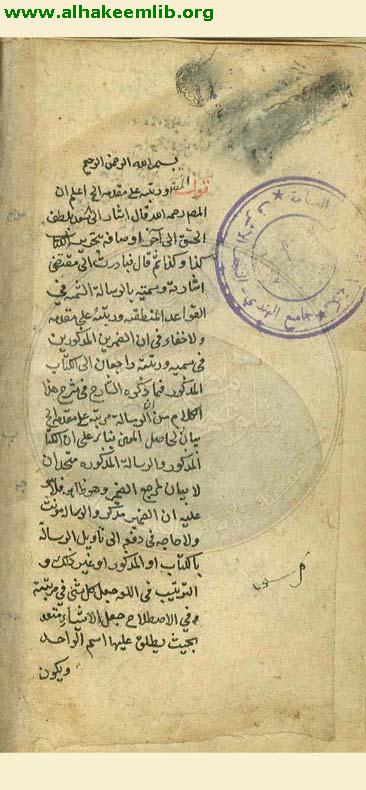 www.alhakeemlib.org
بسم الله الرحمن الرحيم
قوله ورتبته على مقدمة الخ اعلم ان
المصر رحمه الله قال اشار الى بسعد لطف
الحق الى آخر اوصافه بتحرير كتاب
كذا وكذا ثم قال فبادرت الى مقتضى
اشارته وسميته بالرسالة الشمسية في
القواعد المنطقية ورتبته على مقدمة
ولا خفاء في ان الضميرين المذكورين
في سميته ورتبته راجعان الى الكتاب
المذكور فما ذكره الشارح في شرح هذا
الكلام من ان الرسالة مرتبة على مقدمة الخ
بيان لحاصل المعنى بناء على ان الكتاب
المذكور والرسالة المذكورة متحدان
لا بيان لمرجع الضمير وهو ظاهر فلا يرد
عليه ان الضمير مذكر والرسالة مؤنث
ولا حاجة في دفعه الى تأويل الرسالة
بالكتاب او المذكور او غير ذلك و
الترتيب في اللغة جعل كل شئ في مرتبته
وفي الاصطلاح جعل الاشياء المتعددة
بحيث يطلق عليها اسم الواحد
ويكون